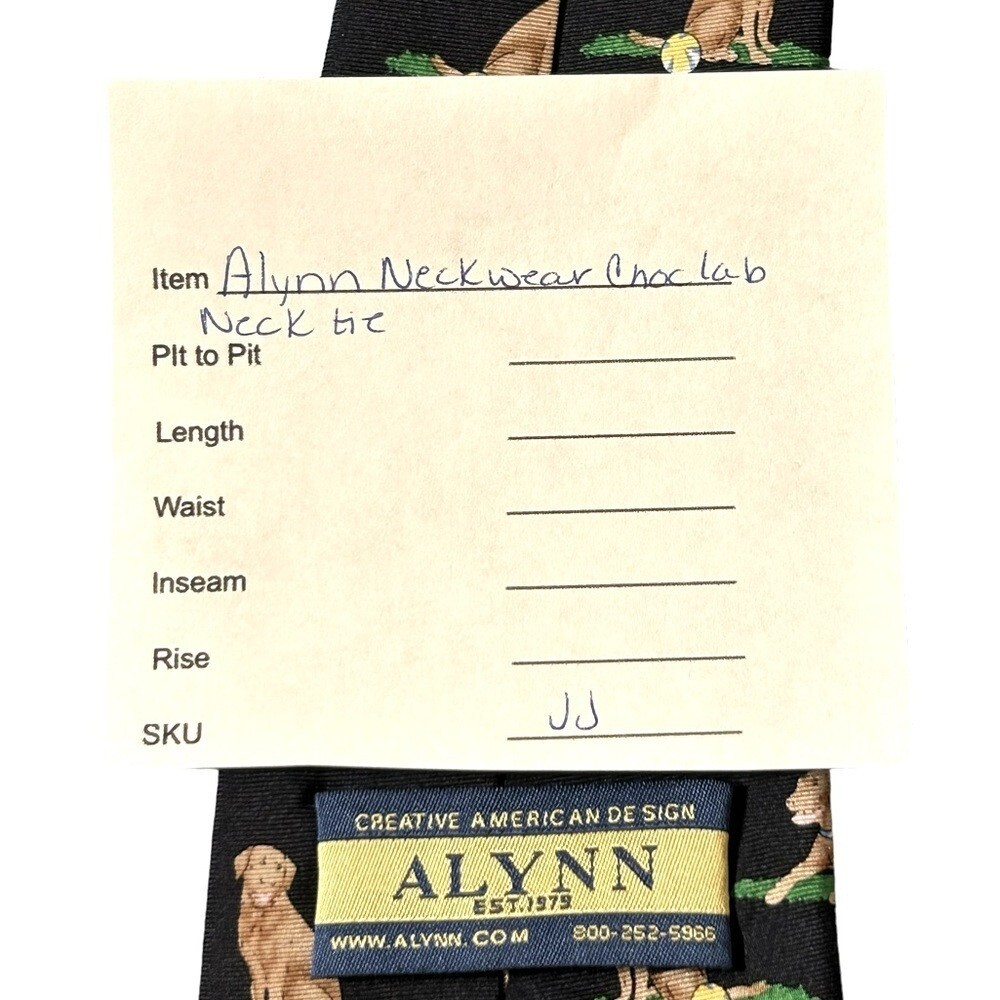 Item Alynn Neckwear Choc lab
Neck tie
PIt to Pit
Length
Waist
Inseam
Rise
SKU JJ
CREATIVE AMERICAN DESIGN
ALYNN
EST.1979
WWW.ALYNN.COM 800-252-5966